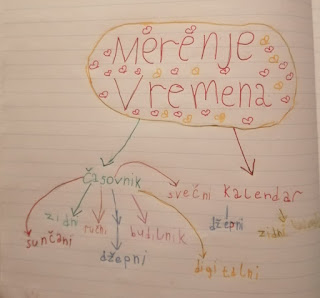 Merenje
Vremena
časovnik
svečni kalendar
sunčani
zidni
ručni
džepni
budilnik
digitalni
džepni
zidni